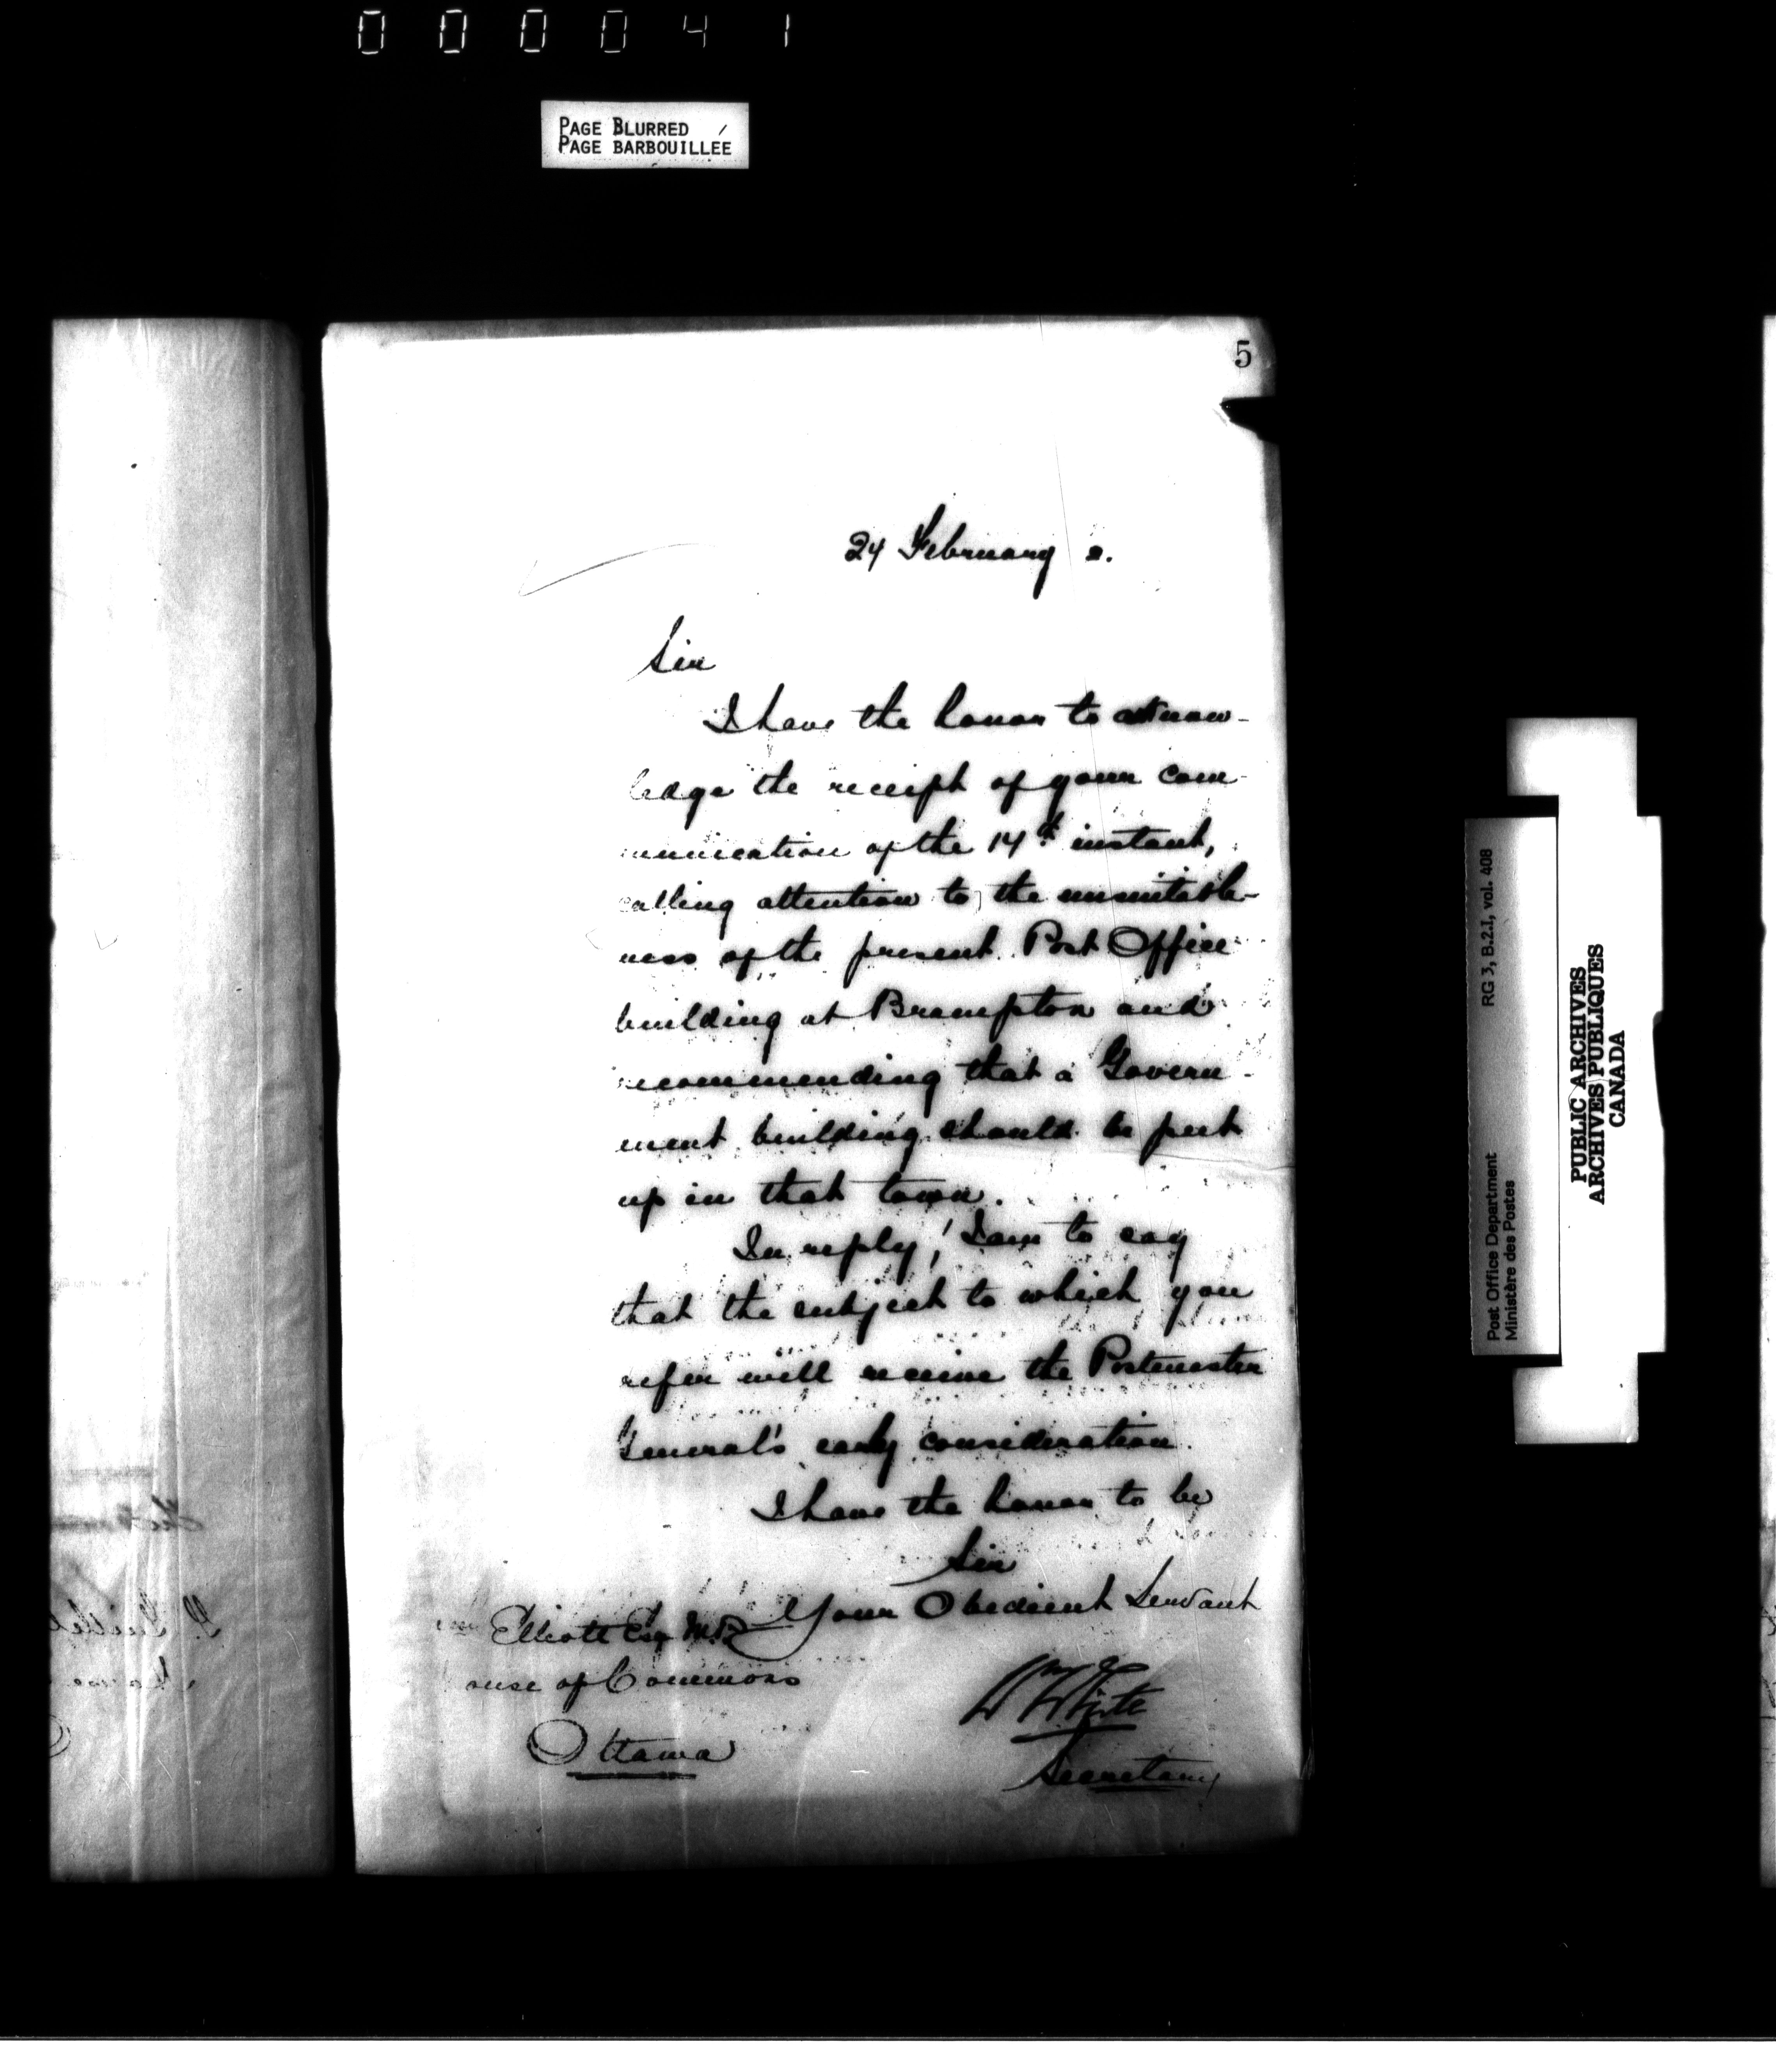 000041
PAGE BLURRED
PAGE BARBOUILLÉE
5
24 February 2.
Sir
I have the honor to acknow-
ledge the receipt of your com-
munication of the 14th instant,
calling attention to the unsuitable-
ness of the present Post Office
building at Brampton and
recommending that a Govern-
ment building should be put
up in that town.
In reply, I am to say
that the subject to which you
refer will receive the Postmaster
General's early consideration.
I have the honor to be
Sir
Your Obedient Servant
Elliott Esq M.P.
ouse of Commons
Ottawa
Wm White
Secretary
Post Office Department RG 3, B.2.1, vol. 408
Ministère des Postes
PUBLIC ARCHIVES
ARCHIVES PUBLIQUES
CANADA